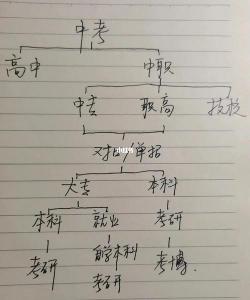 中考
高中 中职
中专 职高 技校
对口/单招
大专 本科
本科 就业 考研
考研 自学本科 考博
考研